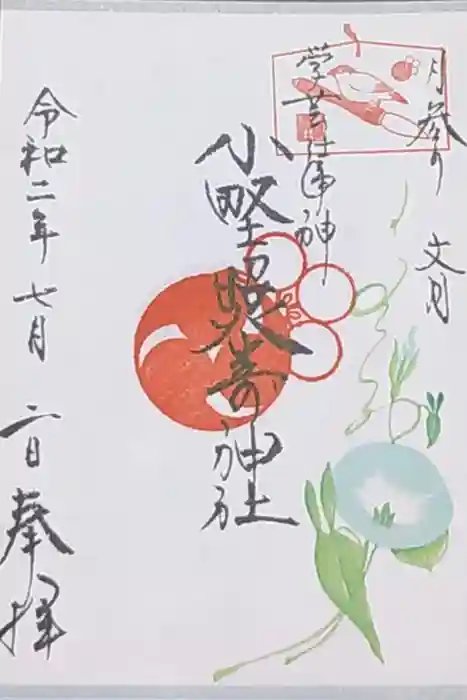 月参り 文月
学芸仕浄神
小野照崎神社
令和二年七月
一日奉拝